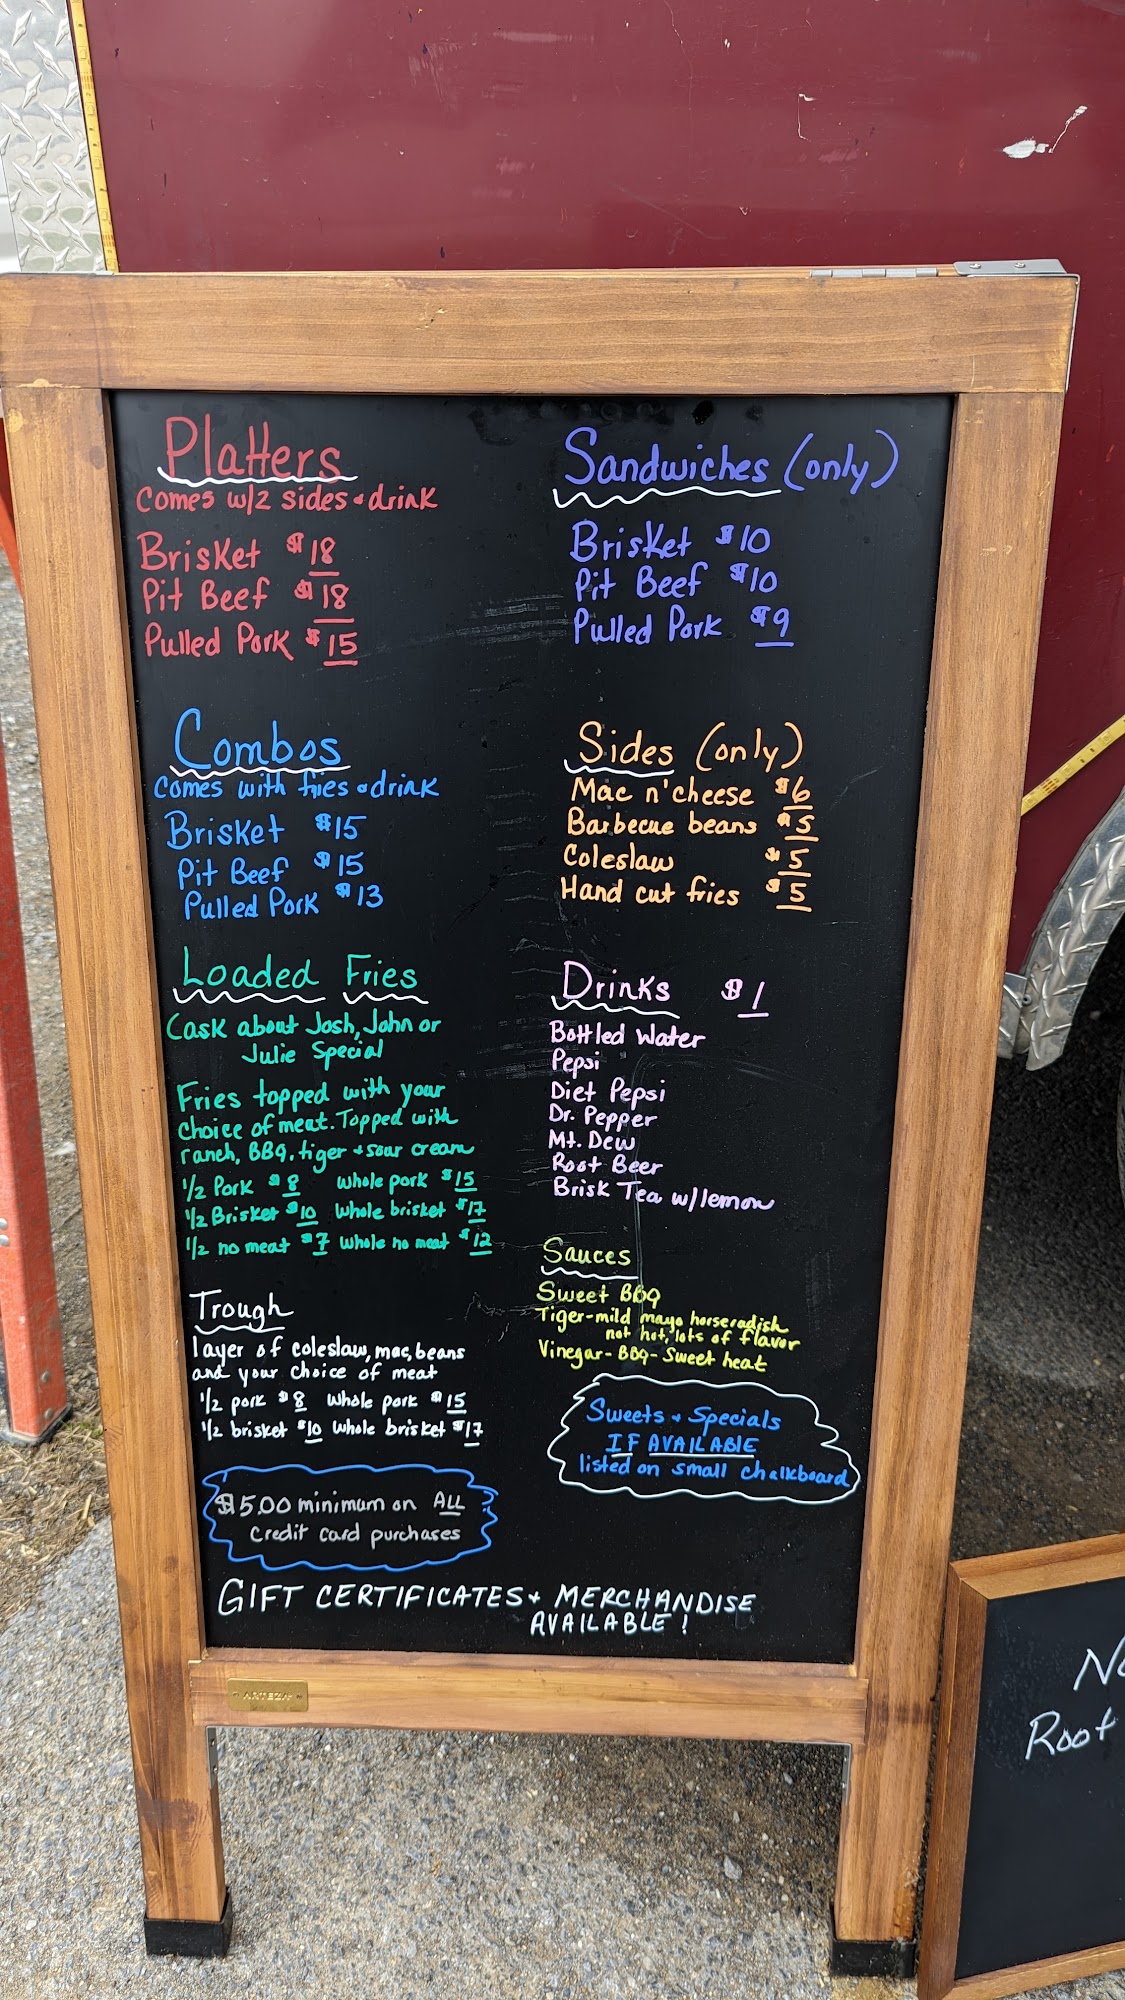 Platters
Comes w/2 sides & drink
Brisket $18
Pit Beef $18
Pulled Pork $15
Combos
Comes with fries & drink
Brisket $15
Pit Beef $15
Pulled Pork $13
Loaded Fries
Cask about Josh, John or
Julie Special
Fries topped with your
choice of meat. Topped with
ranch, BBQ, tiger & sour cream
1/2 Pork $8 whole pork $15
1/2 Brisket $10 whole brisket $17
1/2 no meat $7 whole no meat $12
Trough
layer of coleslaw, mac, beans
and your choice of meat
1/2 pork $8 whole pork $15
1/2 brisket $10 whole brisket $17
$5.00 minimum on ALL
credit card purchases
Sandwiches (only)
Brisket $10
Pit Beef $10
Pulled Pork $9
Sides (only)
Mac n' cheese $6
Barbecue beans $5
Coleslaw $5
Hand cut fries $5
Drinks $1
Bottled Water
Pepsi
Diet Pepsi
Dr. Pepper
Mt. Dew
Root Beer
Brisk Tea w/lemon
Sauces
Sweet BBQ
Tiger-mild mayo horseradish
not hot, lots of flavor
Vinegar-BBQ-Sweet heat
Sweets & Specials
IF AVAILABLE
listed on small chalkboard
GIFT CERTIFICATES & MERCHANDISE
AVAILABLE!
ARTEZA
No
Root